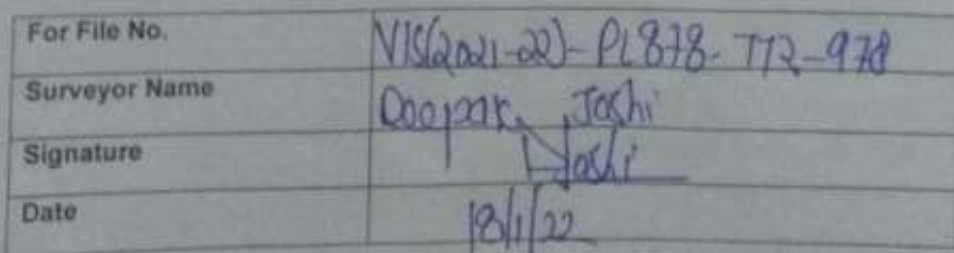 For File No. VIS(2021-22)-PL878-772-978
Surveyor Name Deepak Joshi
Signature DJoshi
Date 18/1/22